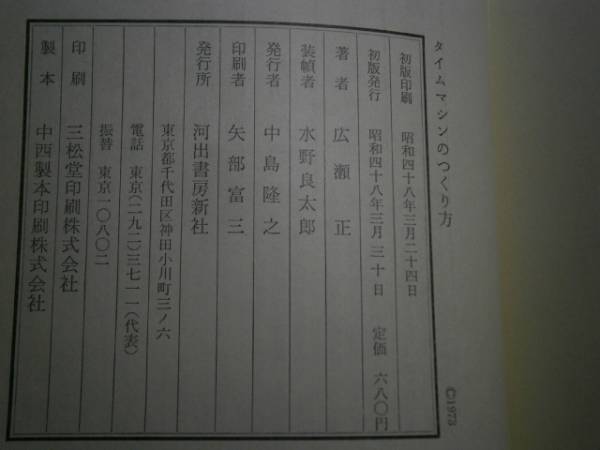 タイムマシンのつくり方
初版印刷 昭和四十八年三月二十四日
初版発行 昭和四十八年三月三十日 定価 六八〇円
著者 広瀬正
装幀者 水野良太郎
発行者 中島隆之
印刷者 矢部富三
発行所 河出書房新社
東京都千代田区神田小川町三ノ六
電話 東京(二九二)三七一一(代表)
振替 東京一〇八〇二
印刷 三松堂印刷株式会社
製本 中西製本印刷株式会社
©1973